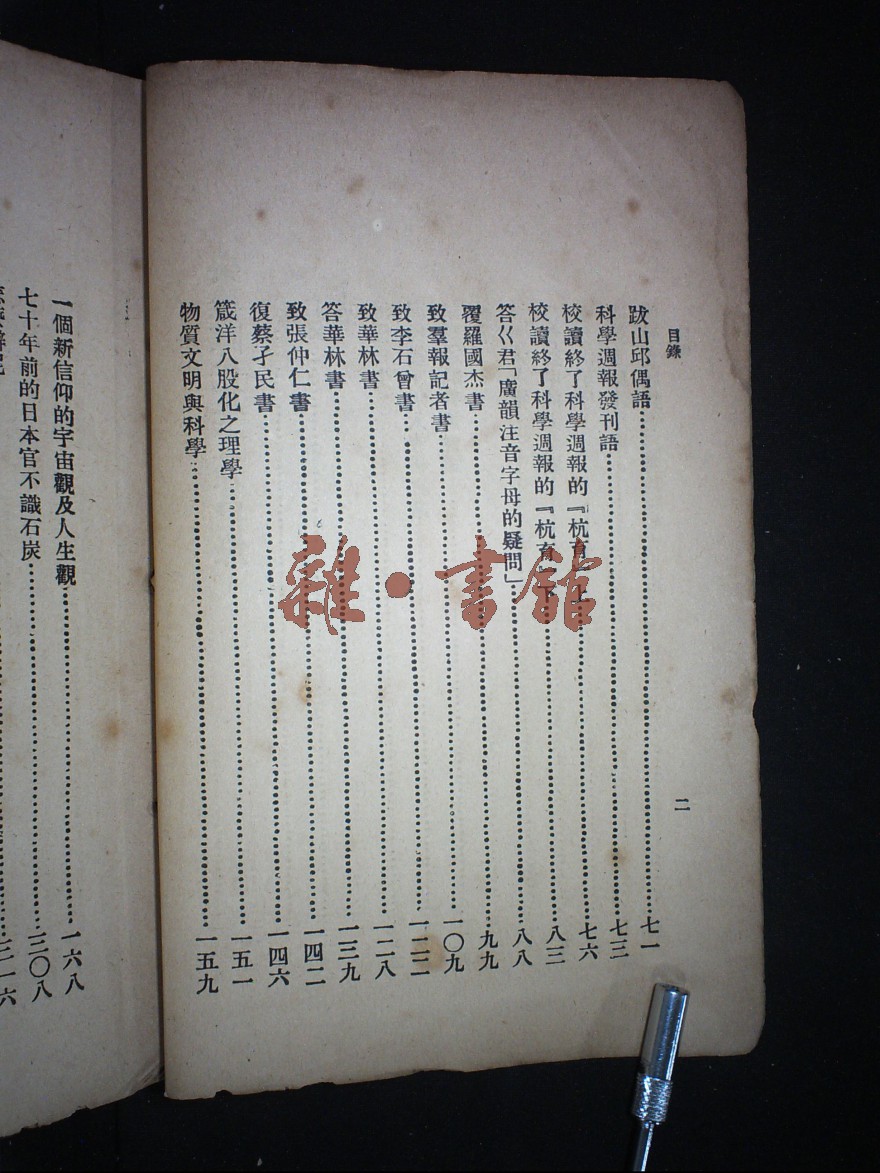 目錄
二
跋山邱偶語……七一
科學週報發刊語……七三
校讀終了科學週報的「杭育」上……七六
校讀終了科學週報的「杭育」下……八三
答ㄍ君「廣韻注音字母的疑問」……八八
覆羅國杰書……九九
致羣報記者書……一〇九
致李石曾書……一二二
致華林書……一二八
答華林書……一三九
致張仲仁書……一四二
復蔡孑民書……一四六
箴洋八股化之理學……一五一
物質文明與科學……一五九
一個新信仰的宇宙觀及人生觀……一六八
七十年前的日本官不識石炭……三〇八
三一六
雜·書館